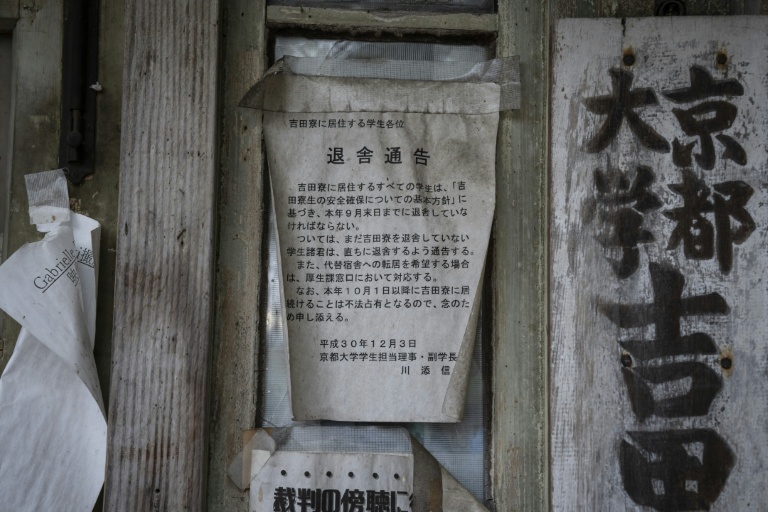 吉田寮に居住する学生各位
退舎通告
吉田寮に居住するすべての学生は、「吉
田寮生の安全確保についての基本方針」に
基づき、本年９月末日までに退舎していな
ければならない。
ついては、まだ吉田寮を退舎していない
学生諸君は、直ちに退舎するよう通告する。
また、代替宿舎への転居を希望する場合
は、厚生課窓口において対応する。
なお、本年１０月１日以降に吉田寮に居
続けることは不法占有となるので、念のた
め申し添える。
平成３０年１２月３日
京都大学学生担当理事・副学長
川添信
裁判の傍聴に
京都
大学
吉田
Gabrielle